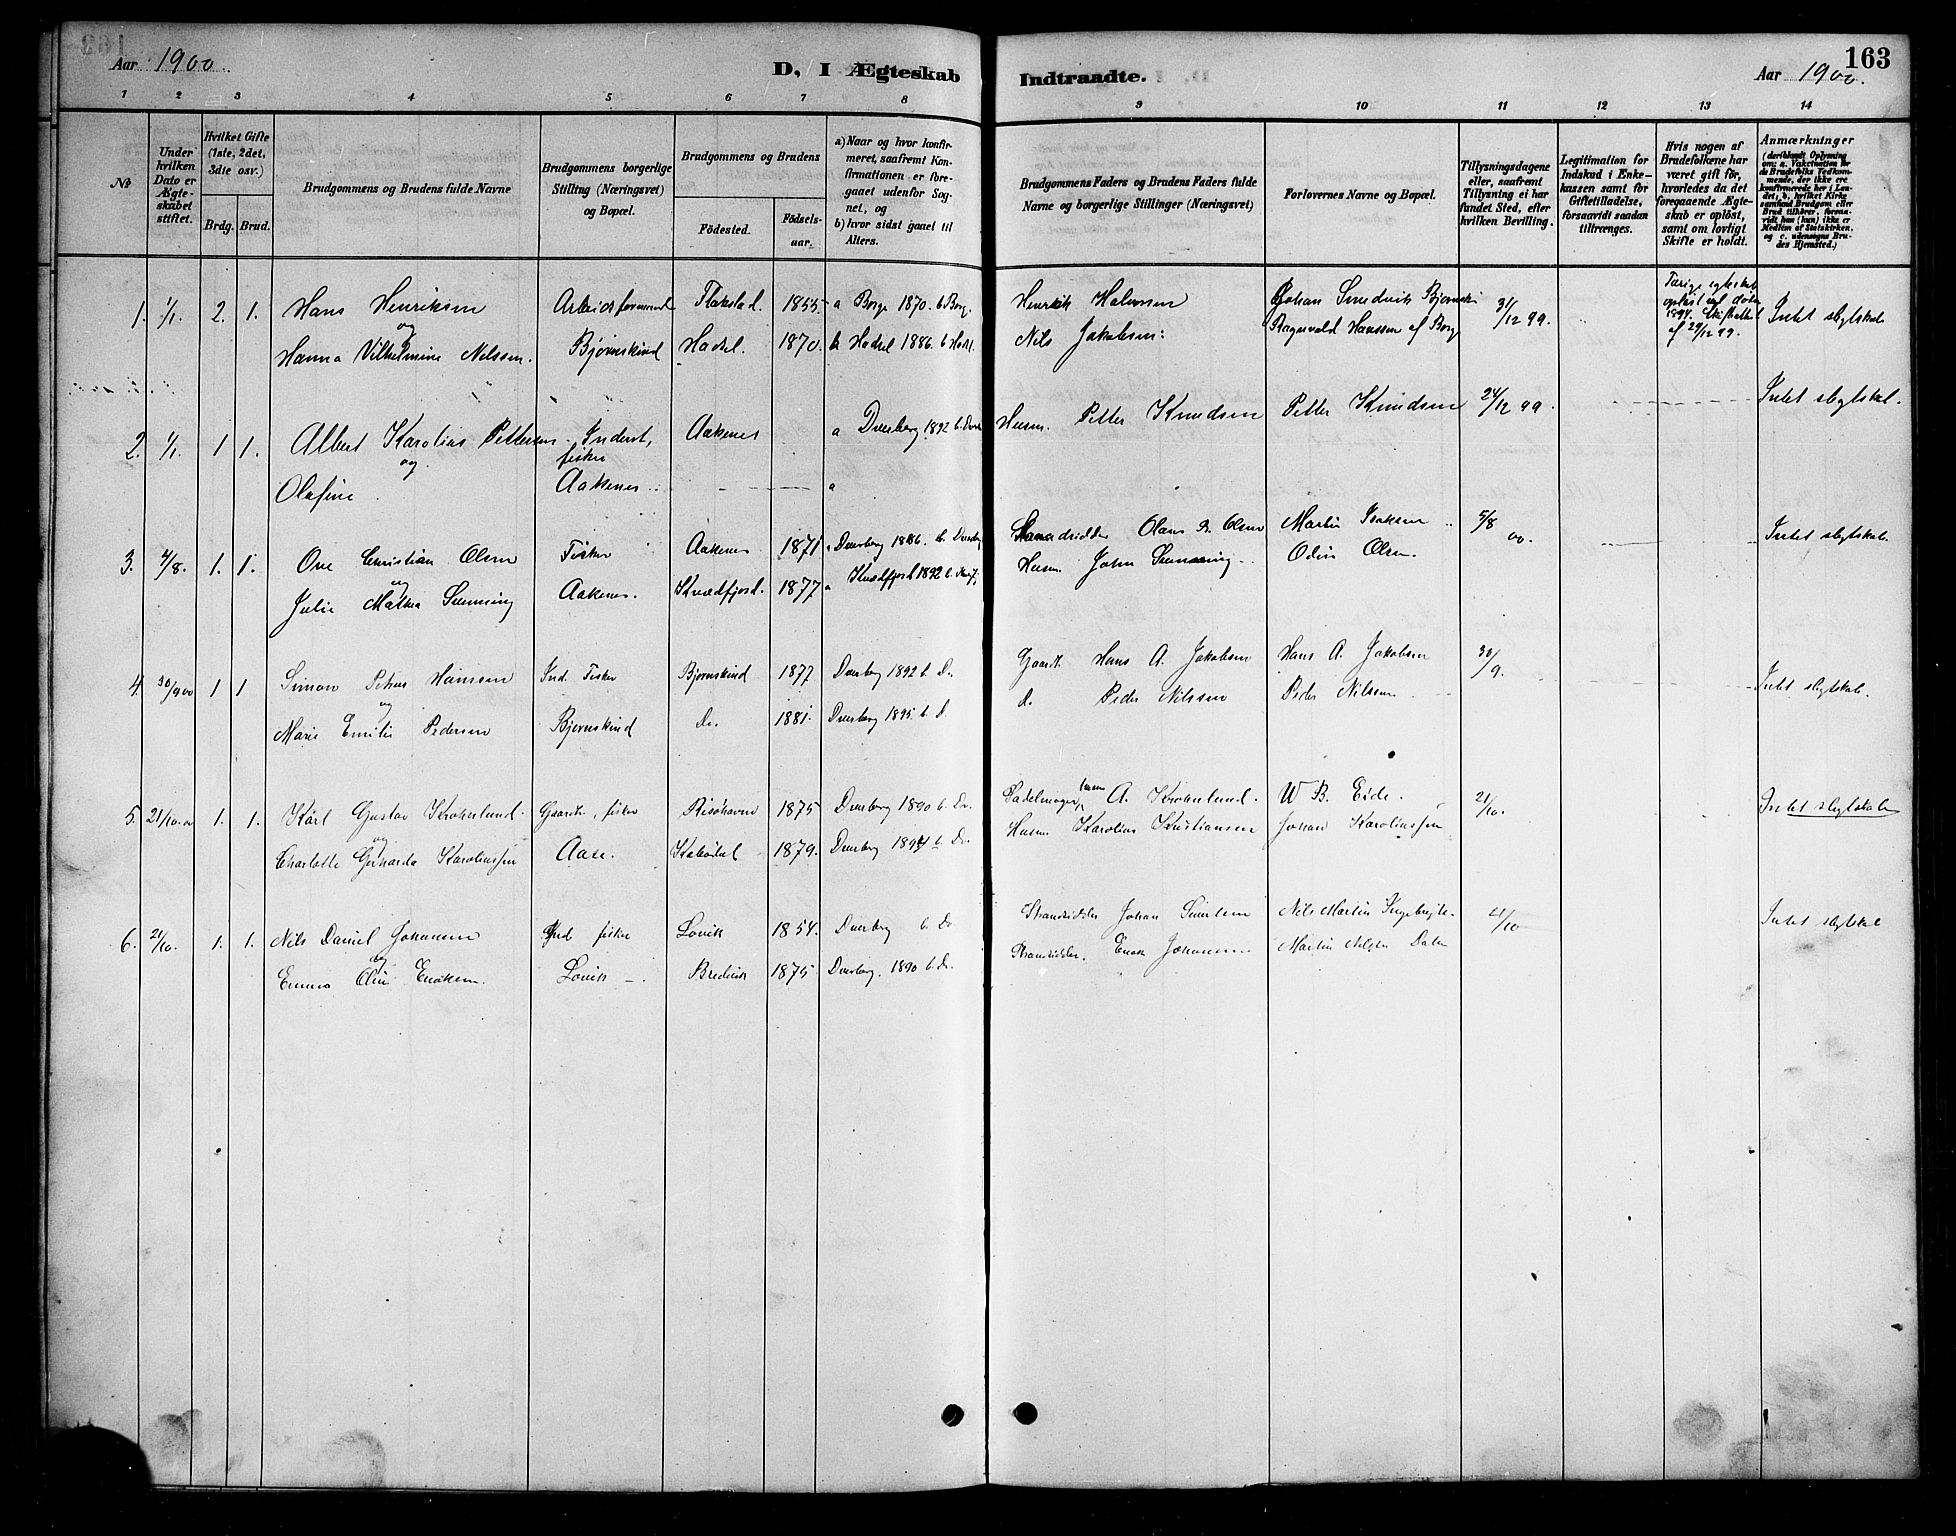 163
Aar 1900.
D, I Ægteskab Indtraadte.
Aar 1900.
1 2 3 4 5 6 7 8 9 10 11 12 13 14
No
Under hvilken Dato er Ægteskabet stiftet.
Hvilket Gifte (1ste, 2det, 3die osv.)
Brdg. Brud.
Brudgommens og Brudens fulde Navne
Brudgommens borgerlige Stilling (Næringsvei) og Bopæl.
Brudgommens og Brudens
Födested.
Födselsaar.
a) Naar og hvor konfirmeret, saafremt Konfirmationen er foregaaet udenfor Sognet, og
b) hvor sidst gaaet til Alters.
Brudgommens Faders og Brudens Faders fulde Navne og borgerlige Stillinger (Næringsvei)
Forlovernes Navne og Bopæl.
Tillysningsdagene eller, saafremt Tillysning ei har fundet Sted, efter hvilken Bevilling.
Legitimation for Indskud i Enkekassen samt for Giftetilladelse, forsaavidt saadan tiltrænges.
Hvis nogen af Brudefolkene har været gift før, hvorledes da det foregaaende Ægteskab er oplöst, samt om lovligt Skifte er holdt.
Anmærkninger (deriblandt Oplysning om: a. Vakcination for de Brudefolks Vedkommende, der ikke ere konfirmerede her i Landet, b. hvilket Kirkesamfund Brudgom eller Brud tilhörer, forsaavidt han (hun) ikke er Medlem af Statskirken, og c. udensogns Brudes Hjemsted.)
1. 1/1. 2. 1. Hans Henriksen Arbeidsformand Flakstad. 1855. a Borge 1870. b. Borg. Henrik Halvorsen Johan Smedvik Bjørnski 31/12 99. Intet slegtskab
og
Hanna Vilhelmine Nilssen. Bjørnskind Hadsel. 1870. b Hadsel 1886. b Hadsl. Nils Jakobsen: Ragnvald Hanssen af Borge
2. 1/1. 1 1. Albert Karolius Pettersen Inderst, Aakenes a Dverberg 1892 b. Husm. Petter Knudsen Petter Knudsen 24/12 99. Intet slegtskab.
og fisker
Olufine Aakenes a
3. 4/8. 1. 1. Ove Christian Olsen Fisker Aakenes 1871 Dverberg 1886. b. Dverberg Olaus B. Olsen Martin Isaksen 5/8 00. Intet slegtskab
og
Julie Mathea Aakenes. Kvædfjord. 1877 a Kvædfjord 1892 b. Husm. John Odin Olsen.
4. 30/9 00 1 1 Simon Petrus Hansen Ind. Fisker Bjørnskind 1877 Dverberg 1892 b. D. Gaardb. Hans A. Jakobsen Hans A. Jakobsen 30/9. Intet slegtskab.
og
Marie Emilie Pedersen Bjørnskind Do. 1881. Dverberg 1895. b. D. D. Peder Nilssen Peder Nilssen
5. 21/10.00 1. 1. Karl Gustav Kroknlund. Gaardb., fisker Risöhavn 1875 Dverberg 1890 b. Do. Sadelmager A. Kroknlund. W. B. Eide. 21/10. Intet slegtskab
og
Charlotte Gerharda Karoliussen Aase 1879. Dverberg 1894 b. Do. Husm Karolius Kristiansen Johan Karoliussen
6. 21/10. 1. 1. Nils Daniel Johansen Ind fisker Lovik 1854. Dverberg b. Do Strandsidder Johan Nils Martin 21/10 Intet slegtskab
og
Emma Olin Enoksen. Lovik 1875 Dverberg. 1890 b. Do. Strandsidder. Enok Johansen Martin